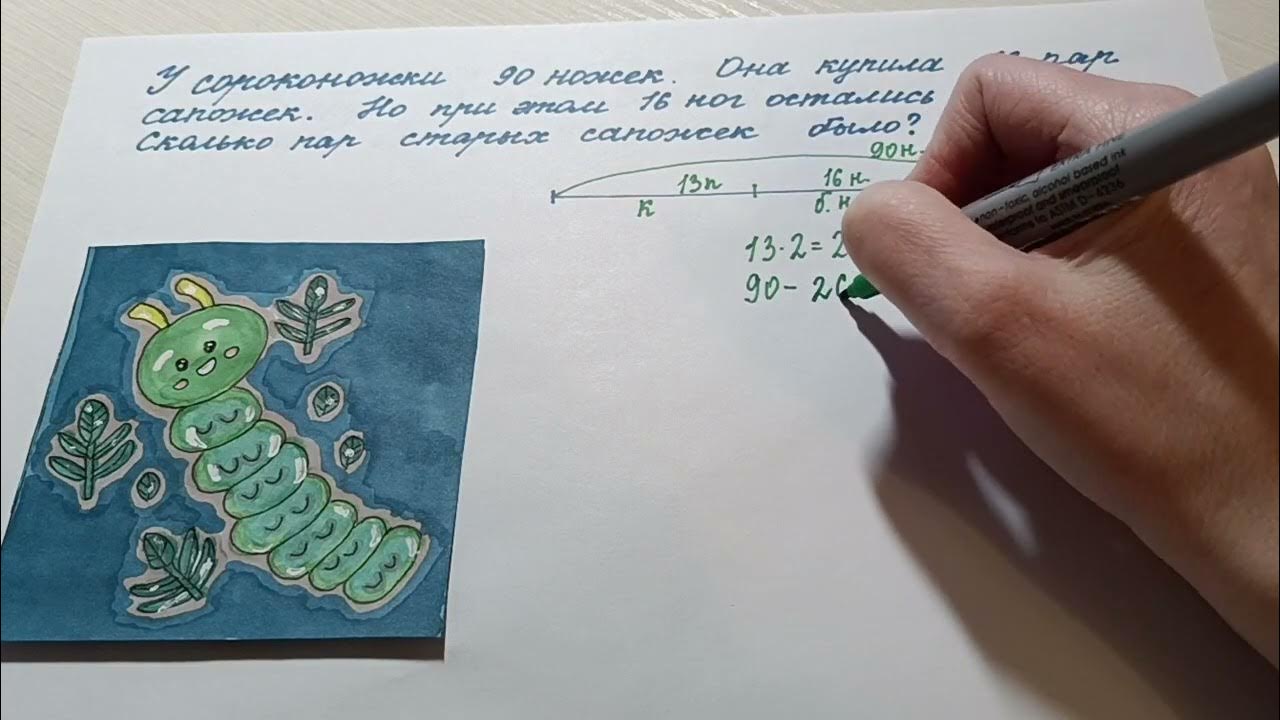 У сороконожки 90 ножек. Она купила пар
сапожек. Но при этом 16 ног остались
Сколько пар старых сапожек было?
90н.
13п 16 н.
к б. н
13·2=2
90- 26
non-toxic, alcohol based ink